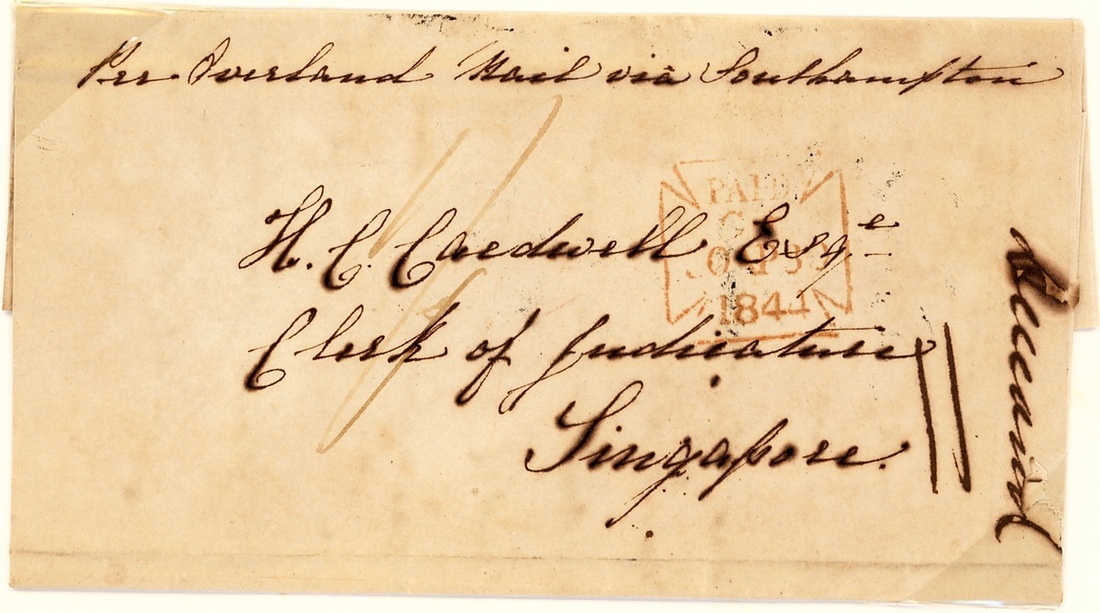 Per Overland Mail via Southampton
PAID
1844
H. C. Caldwell Esqe
Clerk of Judicature
Singapore.